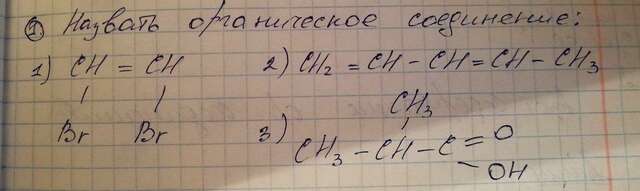 ① Назвать органическое соединение:
1) CH = CH 2) CH₂ = CH - CH = CH - CH₃
| | CH₃
Br Br 3) |
CH₃ - CH - C = O
- OH